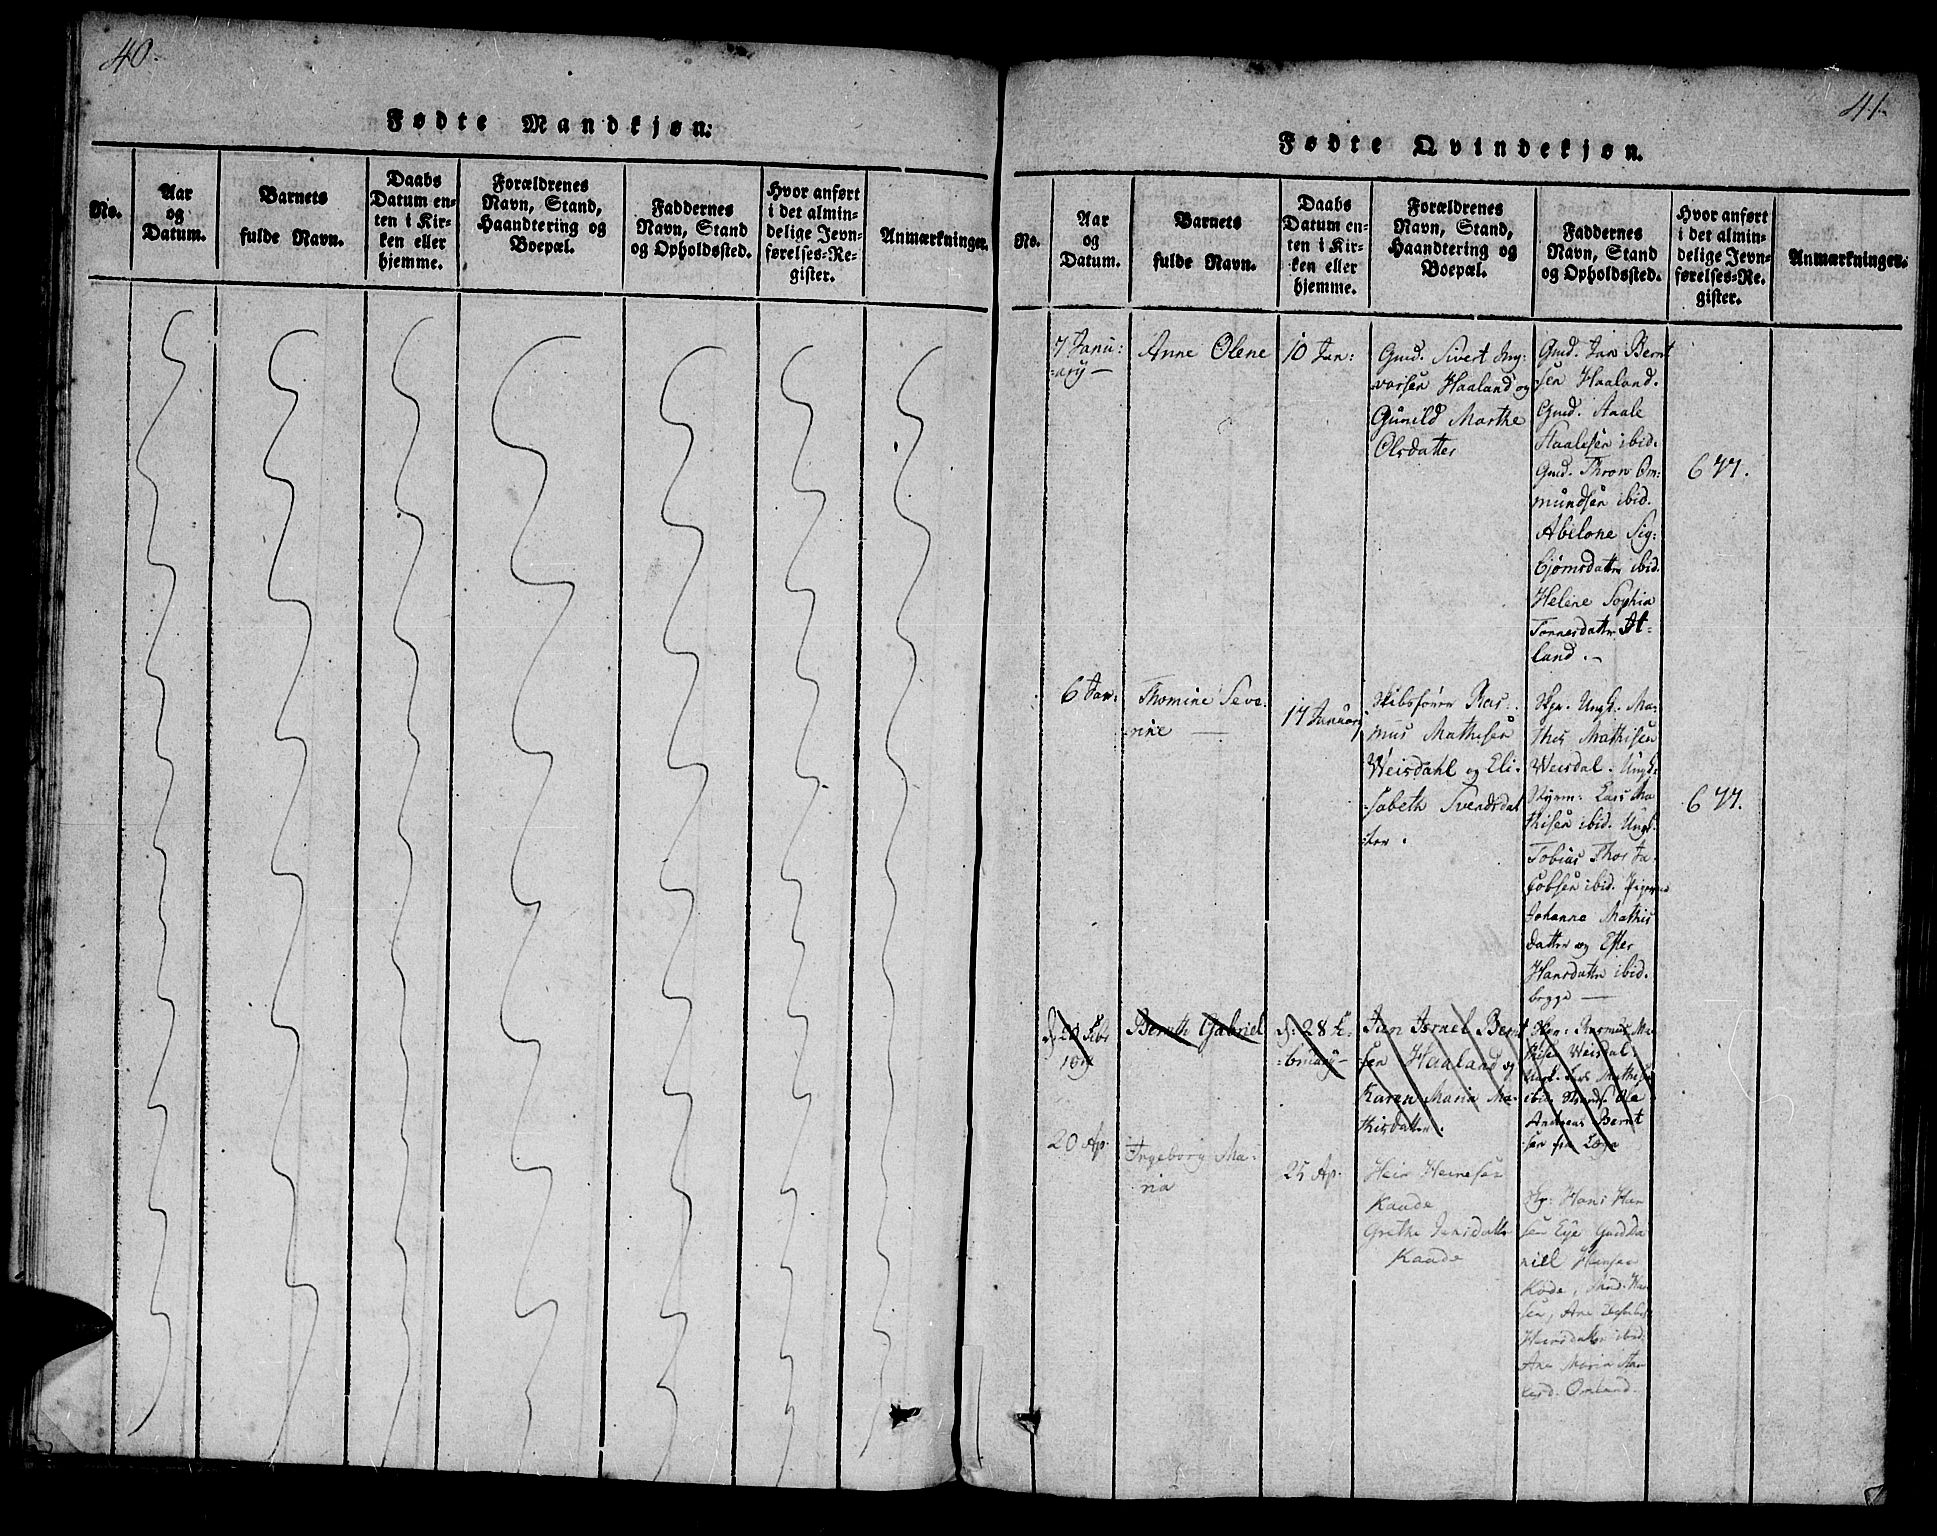 40.
Fødte Mandkjøn:
No.
Aar
og
Datum.
Barnets
fulde Navn.
Daabs
Datum en-
ten i Kir-
ken eller
hjemme.
Forældrenes
Navn, Stand,
Haandtering og
Boepæl.
Faddernes
Navn, Stand
og Opholdssted.
Hvor anført
i det almin-
delige Jevn-
førelses-Re-
gister.
Anmærkninger.
41.
Fødte Qvindekjøn.
No.
Aar
og
Datum.
Barnets
fulde Navn.
Daabs
Datum en-
ten i Kir-
ken eller
hjemme.
Forældrenes
Navn, Stand,
Haandtering og
Boepæl.
Faddernes
Navn, Stand
og Opholdssted.
Hvor anført
i det almin-
delige Jevn-
førelses-Re-
gister.
Anmærkninger.
7 Janu:
=ary —
Anne Olene
10 Jan:
Gmd. Sivert Ing:
varsen Haaland og
Gunild Marthe
Olsdatter
Gmd. Jan Bernt
sen Haaland.
Gmd. Staale
Staalesen ibid.
Gmd. Thron Om=
mundsen ibid.
Abelone Sig:
bjørnsdatter ibid.
Helene Sophia
Tønnesdatter
land. –
677.
6 Jan:
Thomine Seve=
rine —
17 Januar
Skibsfører Ras:
mus Mathisen
Weisdahl og Eli=
sabeth Svendsdat
ter.
Ungk. Ma
this Mathisen
Weisdal. Ungk.
Styrm: Lars Ma
thisen ibid. Ungk.
Tobias Thor Ja
cobsen ibid. Pigerne
Johanne Mathis
datter og
Hansdatter ibid.
begge —
677.
d: 20 Febr
Bernth Gabriel
d: 28 Fe=
=bruary –
Jan Israel Bernt
sen Haaland og
Karen Maria Ma=
thisdatter.
Rasmus Ma=
thisen Weisdal.
Ungk. Lars Mathise
ibid. Ole
Andreas Bernt
sen fra
20 Ap.
Ingeborg Ma=
ria
25 Ap.
Heir Heinesen
Kaade
Grethe Jensdatter
Kaade
Hans Han
sen Eye Gmd Da
niel Hansen
Kode, Han
sen, Ane
Heinsdatter ibid:
Ane Maria
Omland.